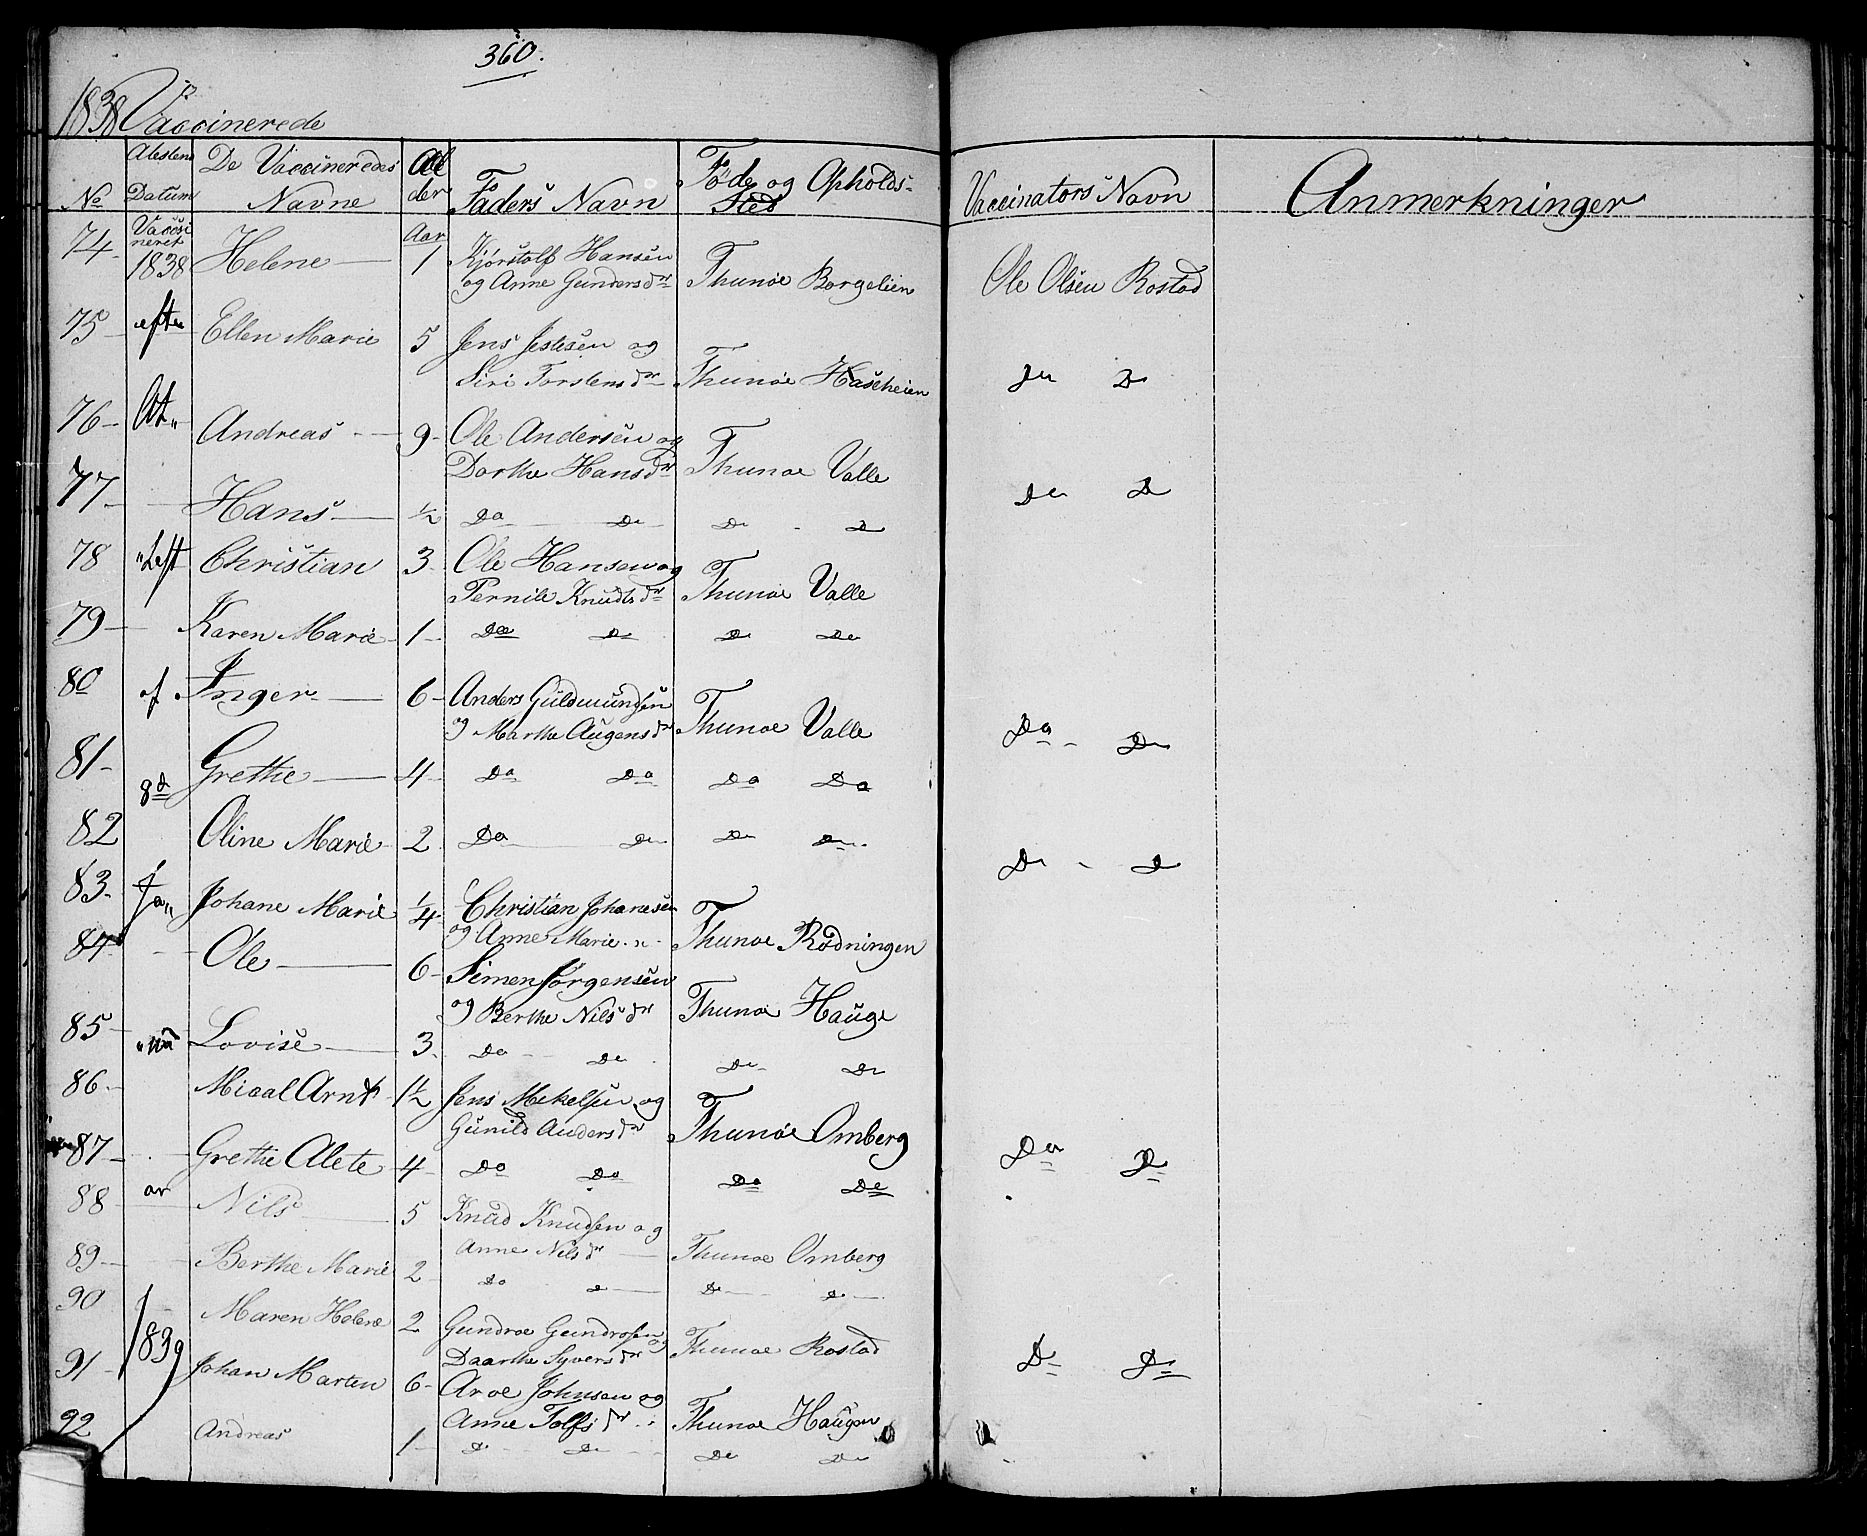 360.
1838 Vaccinerede
No Attestens Datum De Vaccineredes Navne Alder Faders Navn Føde og Opholds-Sted Vaccinators Navn Anmerkninger
Vaccineret Aar
74- 1838 Helene 1 Kjørstolf Hansen Ole Olsen Rostad
og Anne Gundersdr Thunøe Borgelien
75 efter Ellen Marie 5 Jens
Siri Torstensdr Thunøe Haseheien De D
76- At,, Andreas 9- Ole Andersen og
Dorthe Hansdr Thunøe Valle De D
77- Hans ½ Do De De D
78 Christian 3- Ole Hansen og
Pernile Knudtsdr Thunøe Valle
79- Karen Marie 1- Do D D De
80 af Inger 6- Anders Guldmundsen
og Marthe Augensdr Thunøe Valle Do - D
81- Grethe 4- Do Do Do Do
8d
82 Oline Marie 2- Do De De De De - D
83- Ja,, Johane Marie ¼ Christian Johanesen
og Anne Marie Thunøe Rødningen
84- Ole 6- Simen Jørgensen
og Berthe Nilsdr Thunøe Hauge
85- Lovise 3- Do De De De
86- Mical Arnt 1½ Jens Mekelsen og
Gunild Andersdr Thunøe Omberg
87- Grethe Alete 4- Do Do Do De Do D
88 ar Nils 5 Knud Knudsen og
Anne Nilsdr Thunøe Omberg
89- Berthe Marie 2- Do D De D
90 Maren Helene 2 Gundroe Gundrosen og
1839 Daarthe Syversdr Thunøe Rostad D D
91- Johan Marten 6- Aroe Johnsen og
Anne Tolfsdr Thunøe Haugen
92 Andreas 1- D De De De